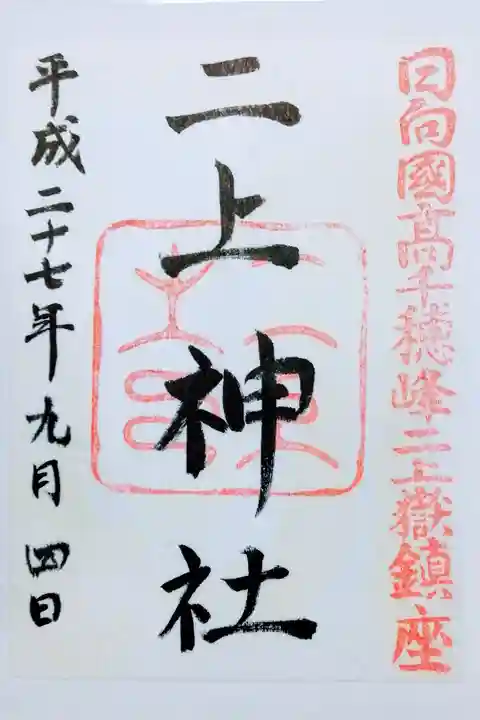 日向國高千穂峰二上嶽鎮座
二上神社
平成二十七年九月四日